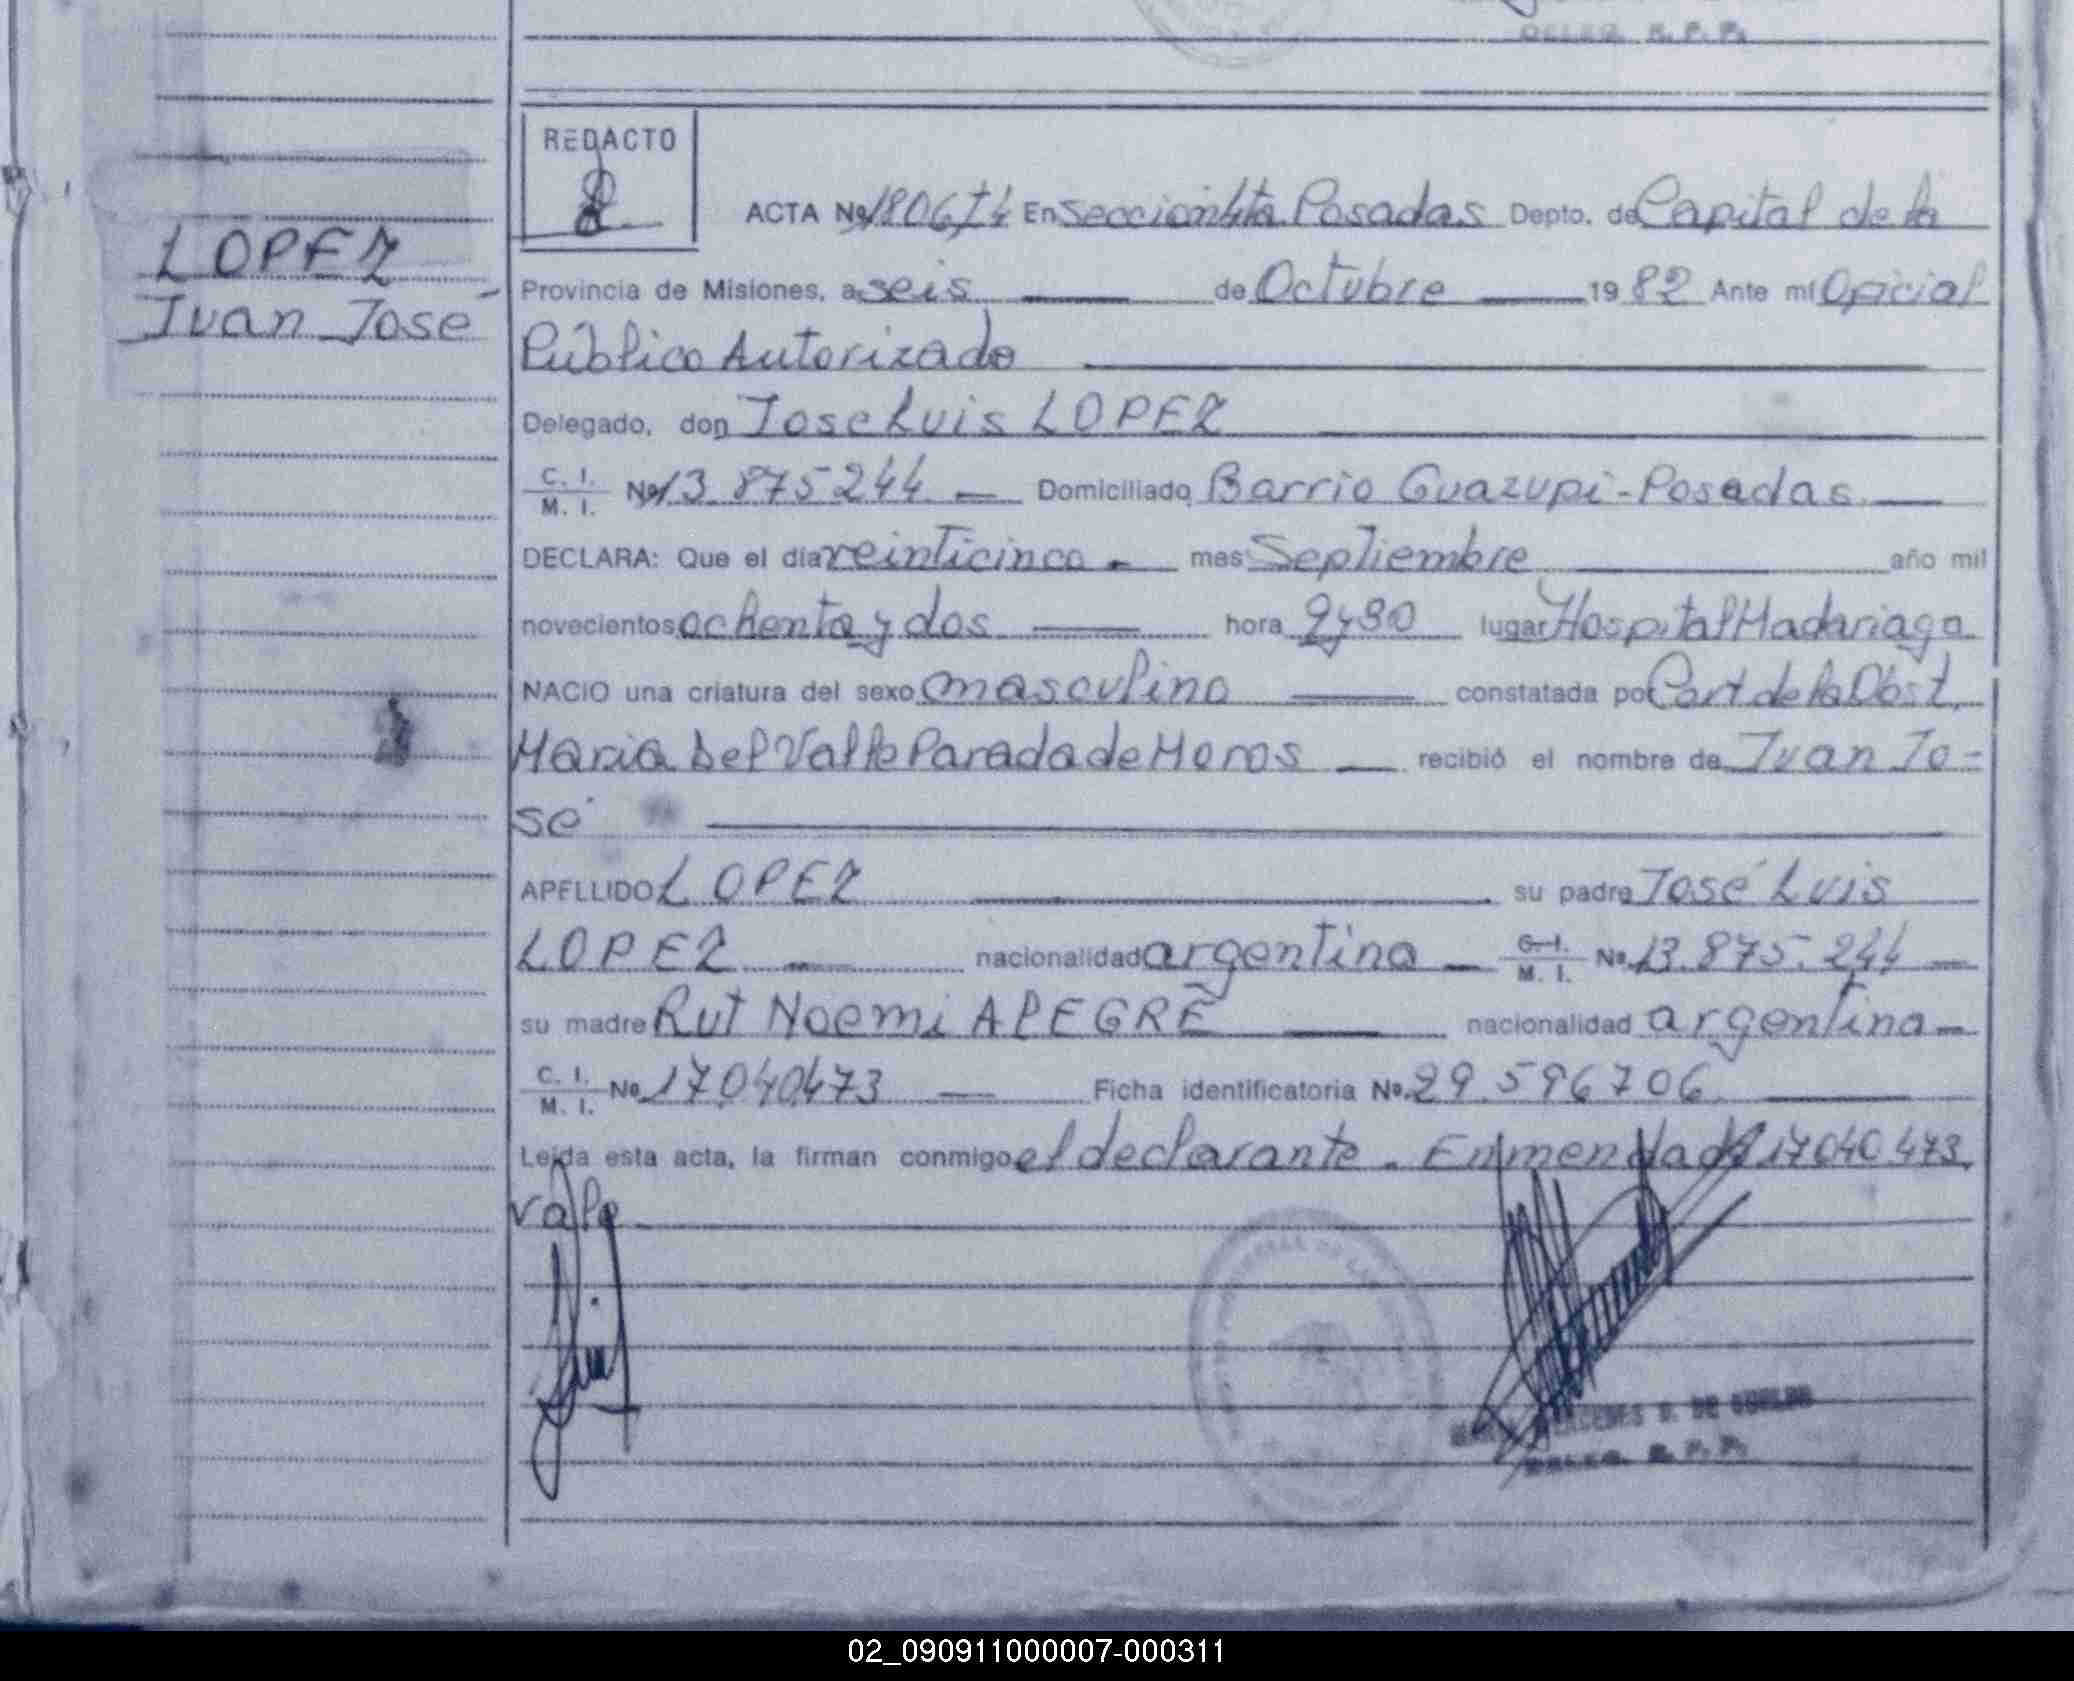 DELEG. R. P. P.
REDACTO
ACTA No 1806 T4 En Seccion 4ta Posadas Depto. de Capital de la
LOPEZ
Provincia de Misiones, a seis de Octubre 19 82 Ante mí Oficial
Juan José
Público Autorizado
Delegado, don Jose Luis LOPEZ
C. I. M. I. No 13 875 244 Domiciliado Barrio Guazupi - Posadas
DECLARA: Que el día veinticinco mes Septiembre año mil
novecientos ochenta y dos hora 9y30 lugar Hospital Madariaga
NACIO una criatura del sexo masculino constatada por Cert de la Obst.
Maria Del Valle Parada de Moros recibió el nombre de Juan Jo-
sé
APELLIDO LOPEZ su padre José Luis
LOPEZ nacionalidad argentina C. I. M. I. No. 13.875.244
su madre Rut Noemi ALEGRE nacionalidad argentina
C. I. M. I. No. 17040473 Ficha identificatoria No. 29.596706
Leída esta acta, la firman conmigo el declarante. Enmendado 17040473.
Vale
DELEG. R. P. P.
02_090911000007-000311